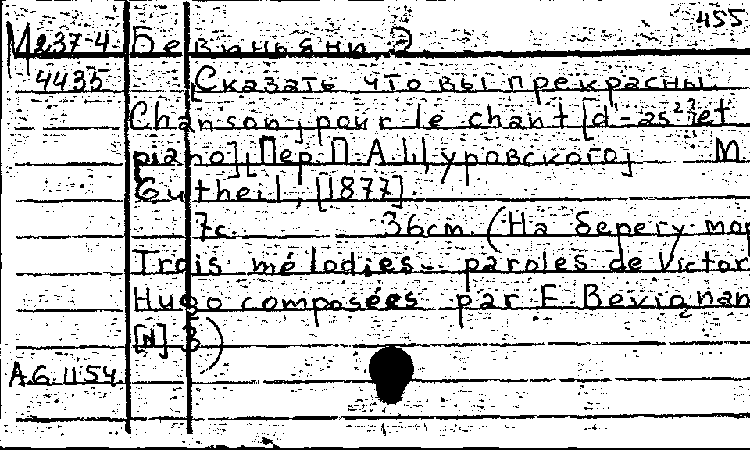 455
М 237-4 Бевиньяни Э.
4435 Сказать что вы прекрасны.
Chanson, pour le chant [d¹-as² et
piano], Пер. П.А. Щуровского, М.
Gutheil, [1877].
7с. 36cm. (На берегу мор
Trois mélodies... paroles de Victor
Hugo composées par E. Bevignan
[N] 3)
A.G. 1154.